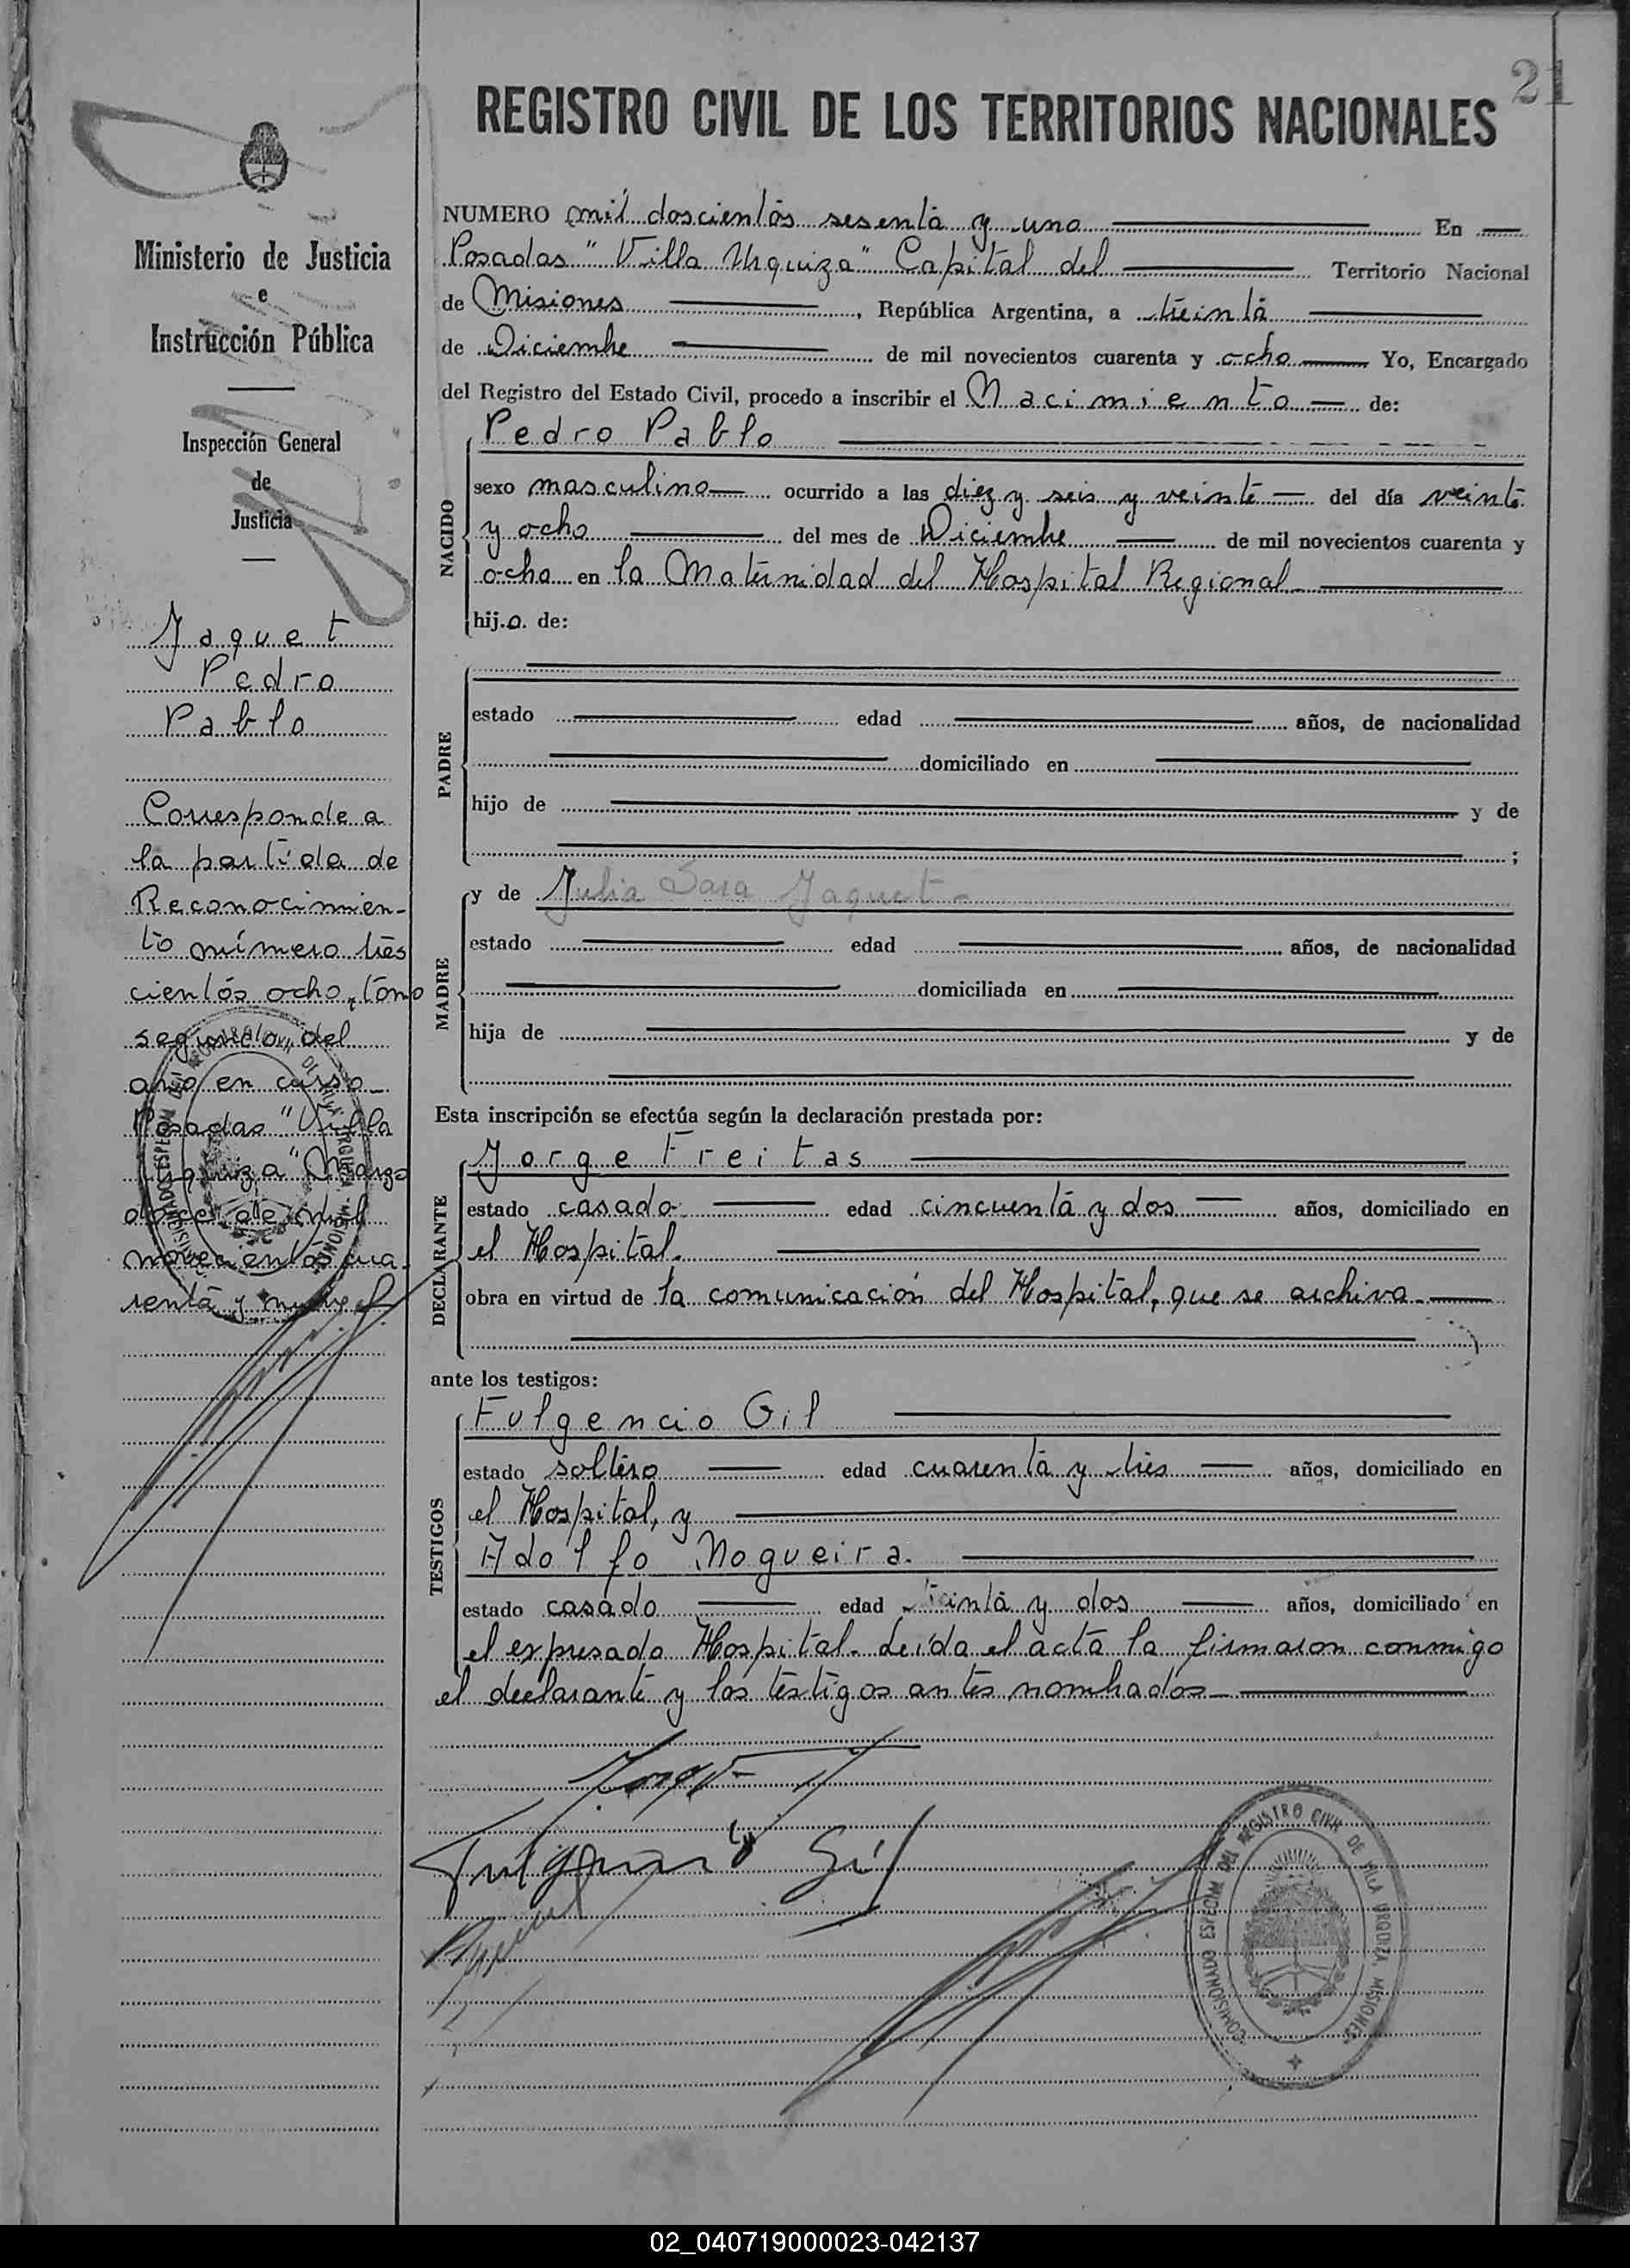 21
REGISTRO CIVIL DE LOS TERRITORIOS NACIONALES
Ministerio de Justicia
e
Instrucción Pública
Inspección General
de
Justicia
Jaquet
Pedro
Pablo
Corresponde a
la partida de
Reconocimien-
to número tres
cientos ocho, tomo
segundo del
año en curso
Posadas "Villa
Urquiza" Marzo
doce de mil
novecientos cua-
renta y nueve
NUMERO mil doscientos sesenta y uno En
Posadas "Villa Urquiza" Capital del Territorio Nacional
de Misiones, República Argentina, a treinta
de Diciembre de mil novecientos cuarenta y ocho Yo, Encargado
del Registro del Estado Civil, procedo a inscribir el Nacimiento de:
NACIDO
Pedro Pablo
sexo masculino ocurrido a las diez y seis y veinte del día veinte
y ocho del mes de Diciembre de mil novecientos cuarenta y
ocho en la Maternidad del Hospital Regional
hij.o. de:
PADRE
estado edad años, de nacionalidad
domiciliado en
hijo de y de
;
MADRE
y de Julia Sara Jaquet -
estado edad años, de nacionalidad
domiciliada en
hija de y de
Esta inscripción se efectúa según la declaración prestada por:
DECLARANTE
Jorge Freitas
estado casado edad cincuenta y dos años, domiciliado en
el Hospital.
obra en virtud de la comunicación del Hospital, que se archiva.
ante los testigos:
TESTIGOS
Fulgencio Gil
estado soltero edad cuarenta y tres años, domiciliado en
el Hospital, y
Adolfo Nogueira.
estado casado edad treinta y dos años, domiciliado en
el expresado Hospital. Leída el acta la firmaron conmigo
el declarante y los testigos antes nombrados
Fulgencio Gil
COMISIONADO ESPECIAL DEL REGISTRO CIVIL DE VILLA URQUIZA MISIONES
02_040719000023-042137